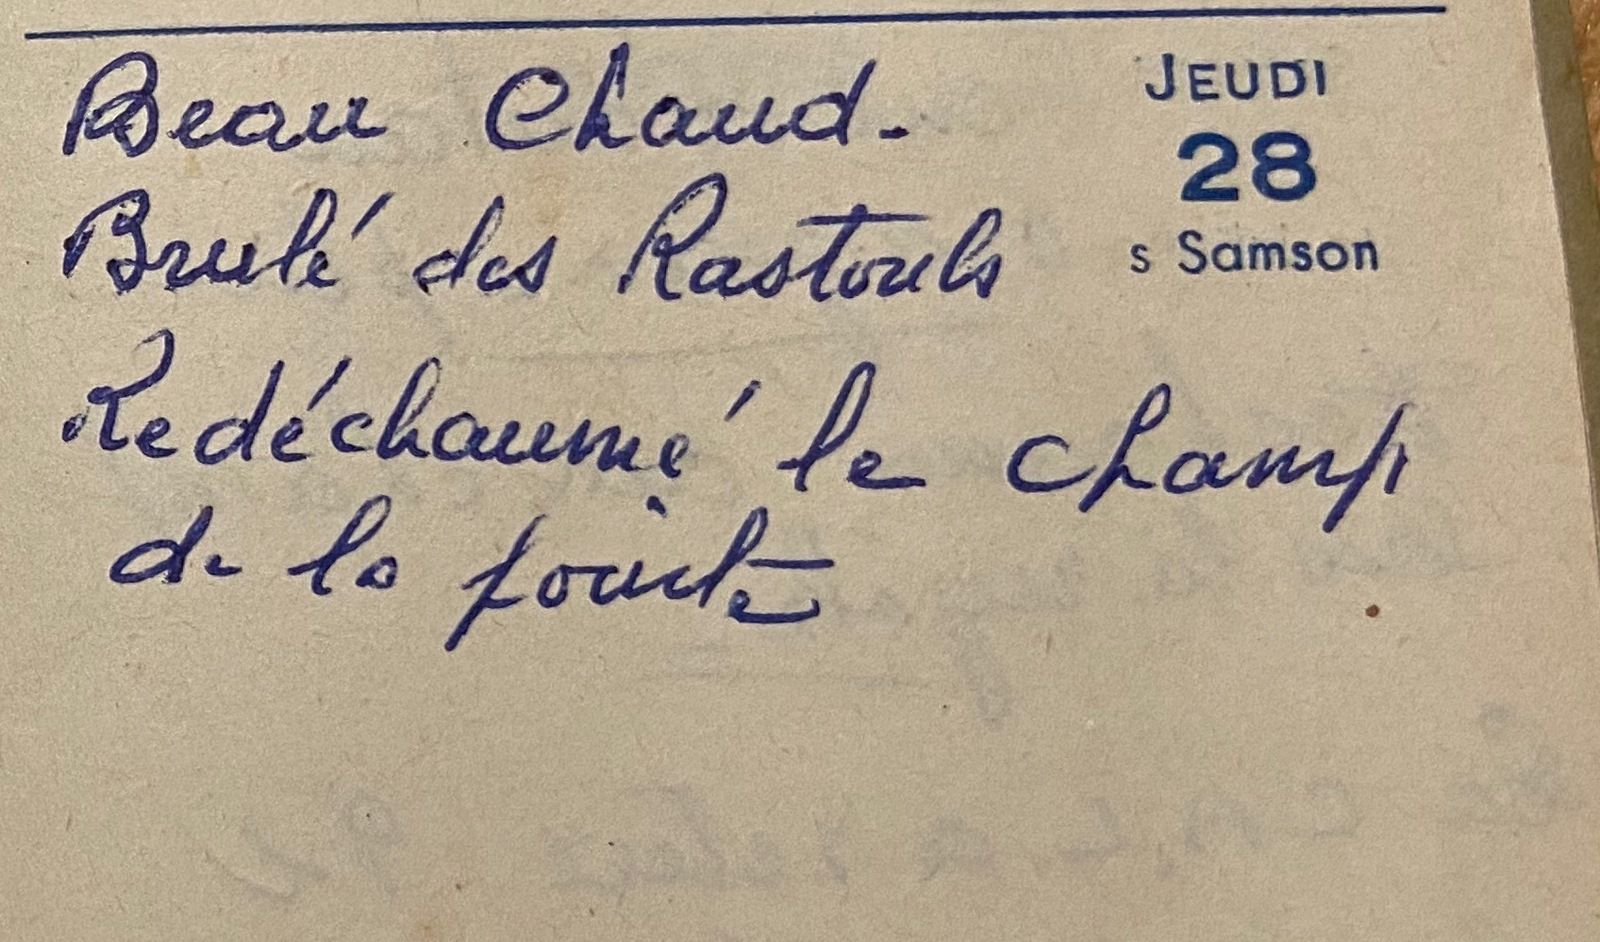 Beau Chaud.
JEUDI
28
s Samson
Brulé des Rastouls
Redéchaumé le champ
de la pointe